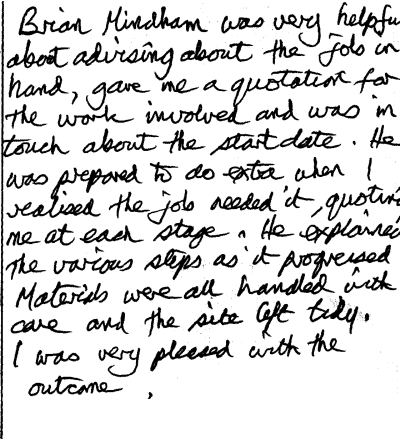 Brian Mindham was very helpfu
about advising about the job in
hand, gave me a quotation for
the work involved and was in
touch about the start date. He
was prepared to do extra when I
realised the job needed it, quotin
me at each stage. He explained
the various steps as it progressed
Materials were all handled with
care and the site left tidy.
I was very pleased with the
outcome.